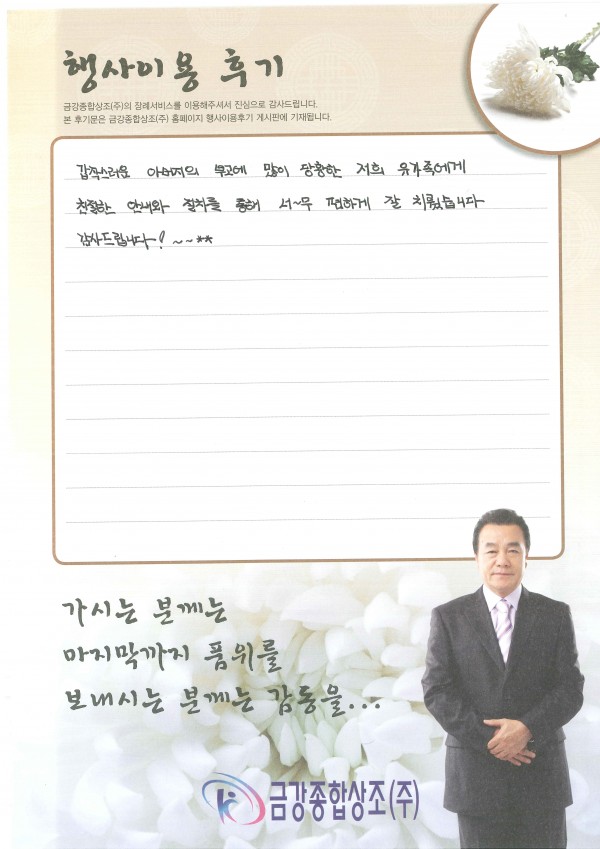 행사이용 후기
금강종합상조(주)의 장례서비스를 이용해주셔서 진심으로 감사드립니다.
본 후기문은 금강종합상조(주) 홈페이지 행사이용후기 게시판에 기재됩니다.
갑작스러운 아버지의 부고에 많이 당황한 저희 유가족에게
친절한 안내와 절차를 통해 너~무 편하게 잘 치뤘습니다
감사드립니다! ~~**
가시는 분께는
마지막까지 품위를
보내시는 분께는 감동을...
금강종합상조(주)